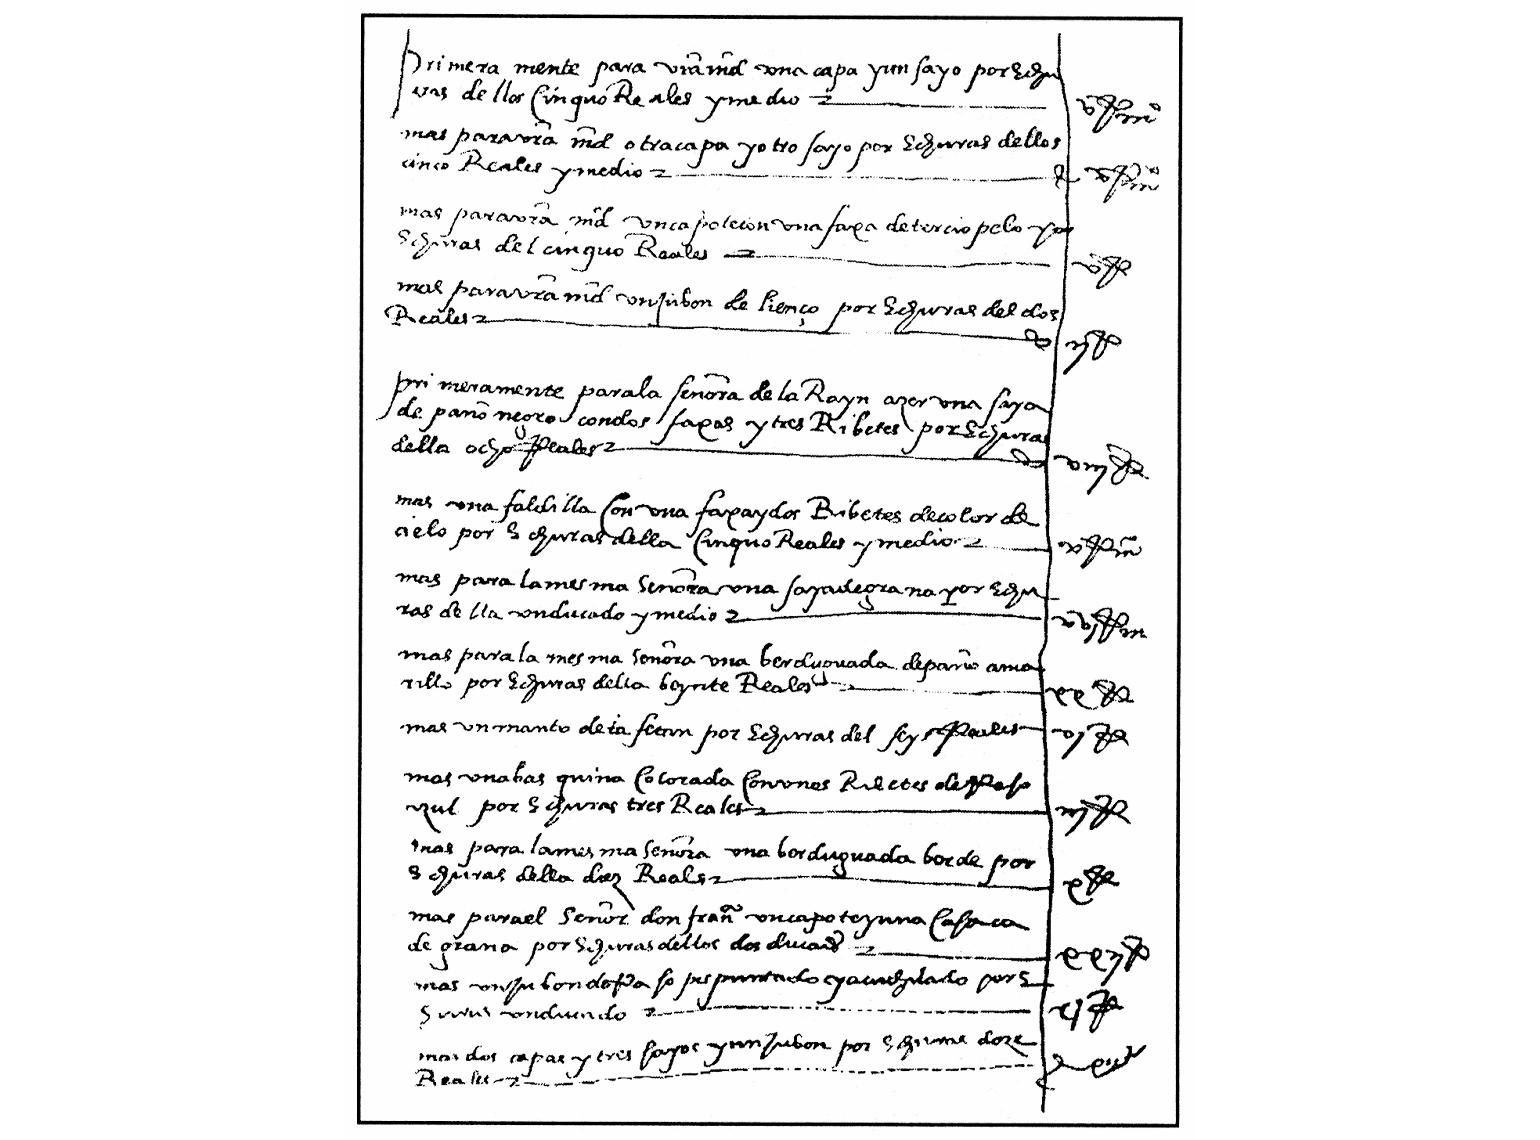 primera mente para vra md una capa y un sayo por echu
ras dellos cinquo Reales y medio v Rs mo
mas para vra md otra capa y otro sayo por echuras dellos
cinco Reales y medio v Rs mo
mas para vra md un capote con una faxa de terciopelo por
echuras del cinquo Reales v Rs
mas para vra md un jubon de lienço por echuras del dos
Reales ij Rs
primeramente para la señora de la Rayn azer una saya
de paño negro con dos faxas y tres Ribetes por echuras
della ocho Reales viij Rs
mas una faldilla con una faxa y dos Ribetes de color de
cielo por echuras della cinquo Reales y medio v Rs m
mas para la mesma señora una saya de grana por echu
ras della un ducado y medio xvj Rs m
mas para la mesma señora una berduguada de paño ama
rillo por echuras della beynte Reales xx Rs
mas un manto de tafetan por echuras del seys Reales vj Rs
mas una basquina colorada con unos Ribetes de Raso
azul por echuras tres Reales iij Rs
mas para la mesma señora una berduguada borde por
echuras della diez Reales x Rs
mas para el señor don frañco un capote y una casaca
de grana por echuras dellos dos ducados xxij Rs
mas un jubon de Raso pespuntado y acuchilado por e
churas un ducado xj Rs
mas dos capas y tres sayos y un jubon por echuras doze
Reales xij